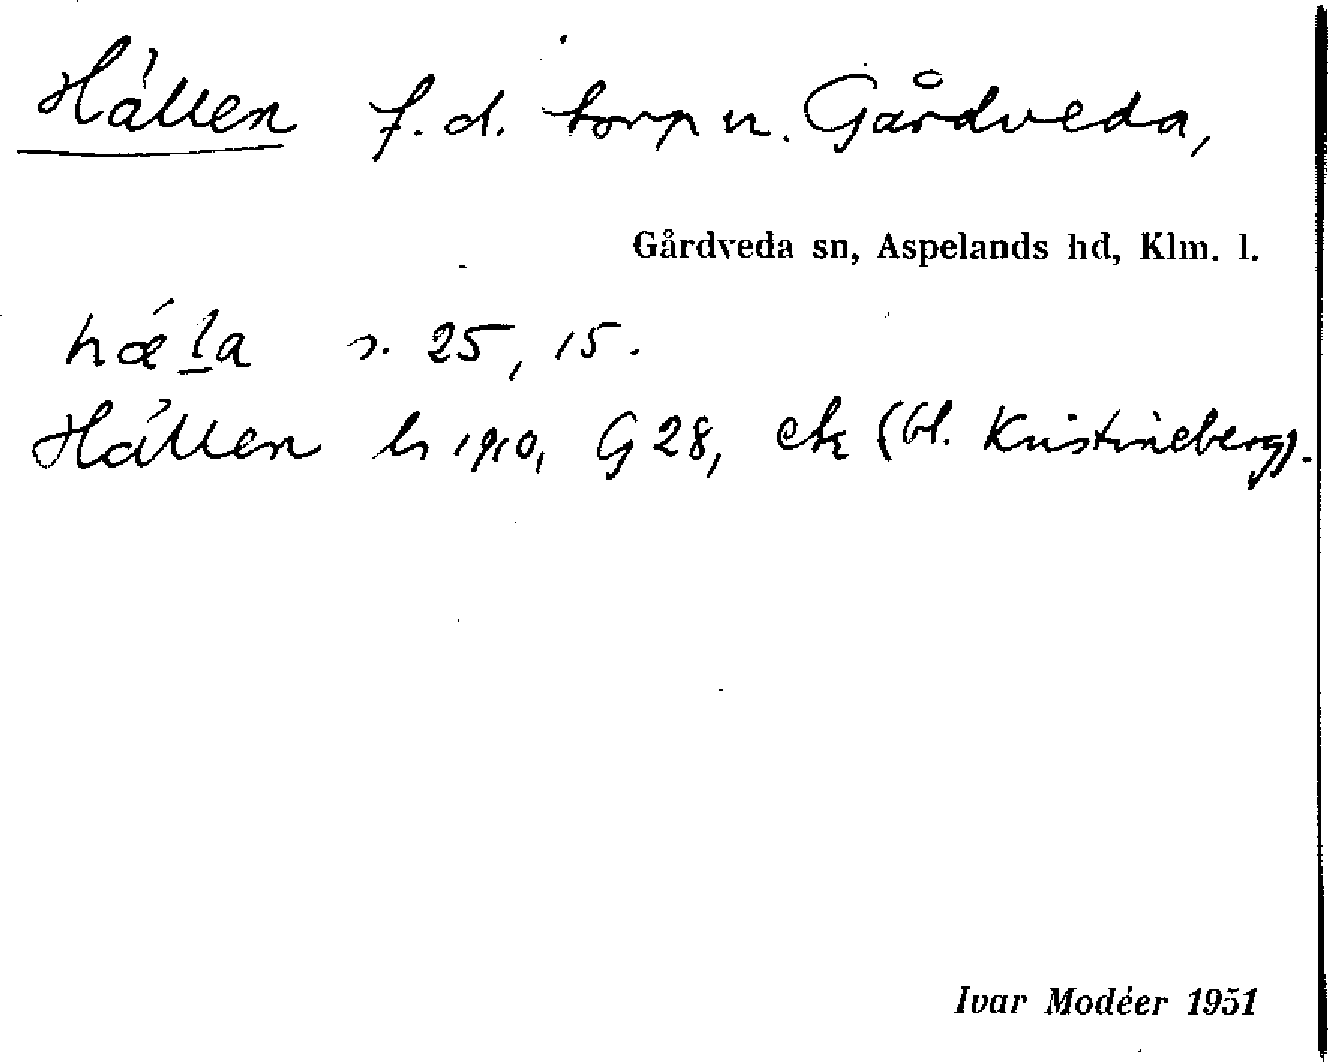 Hällen f.d. torp u. Gårdveda,
Gårdveda sn, Aspelands hd, Klm. l.
hǽl̲a s. 25, 15.
Hällen hs 1910, G 28, ek (bl. Kristineberg).
Ivar Modéer 1951